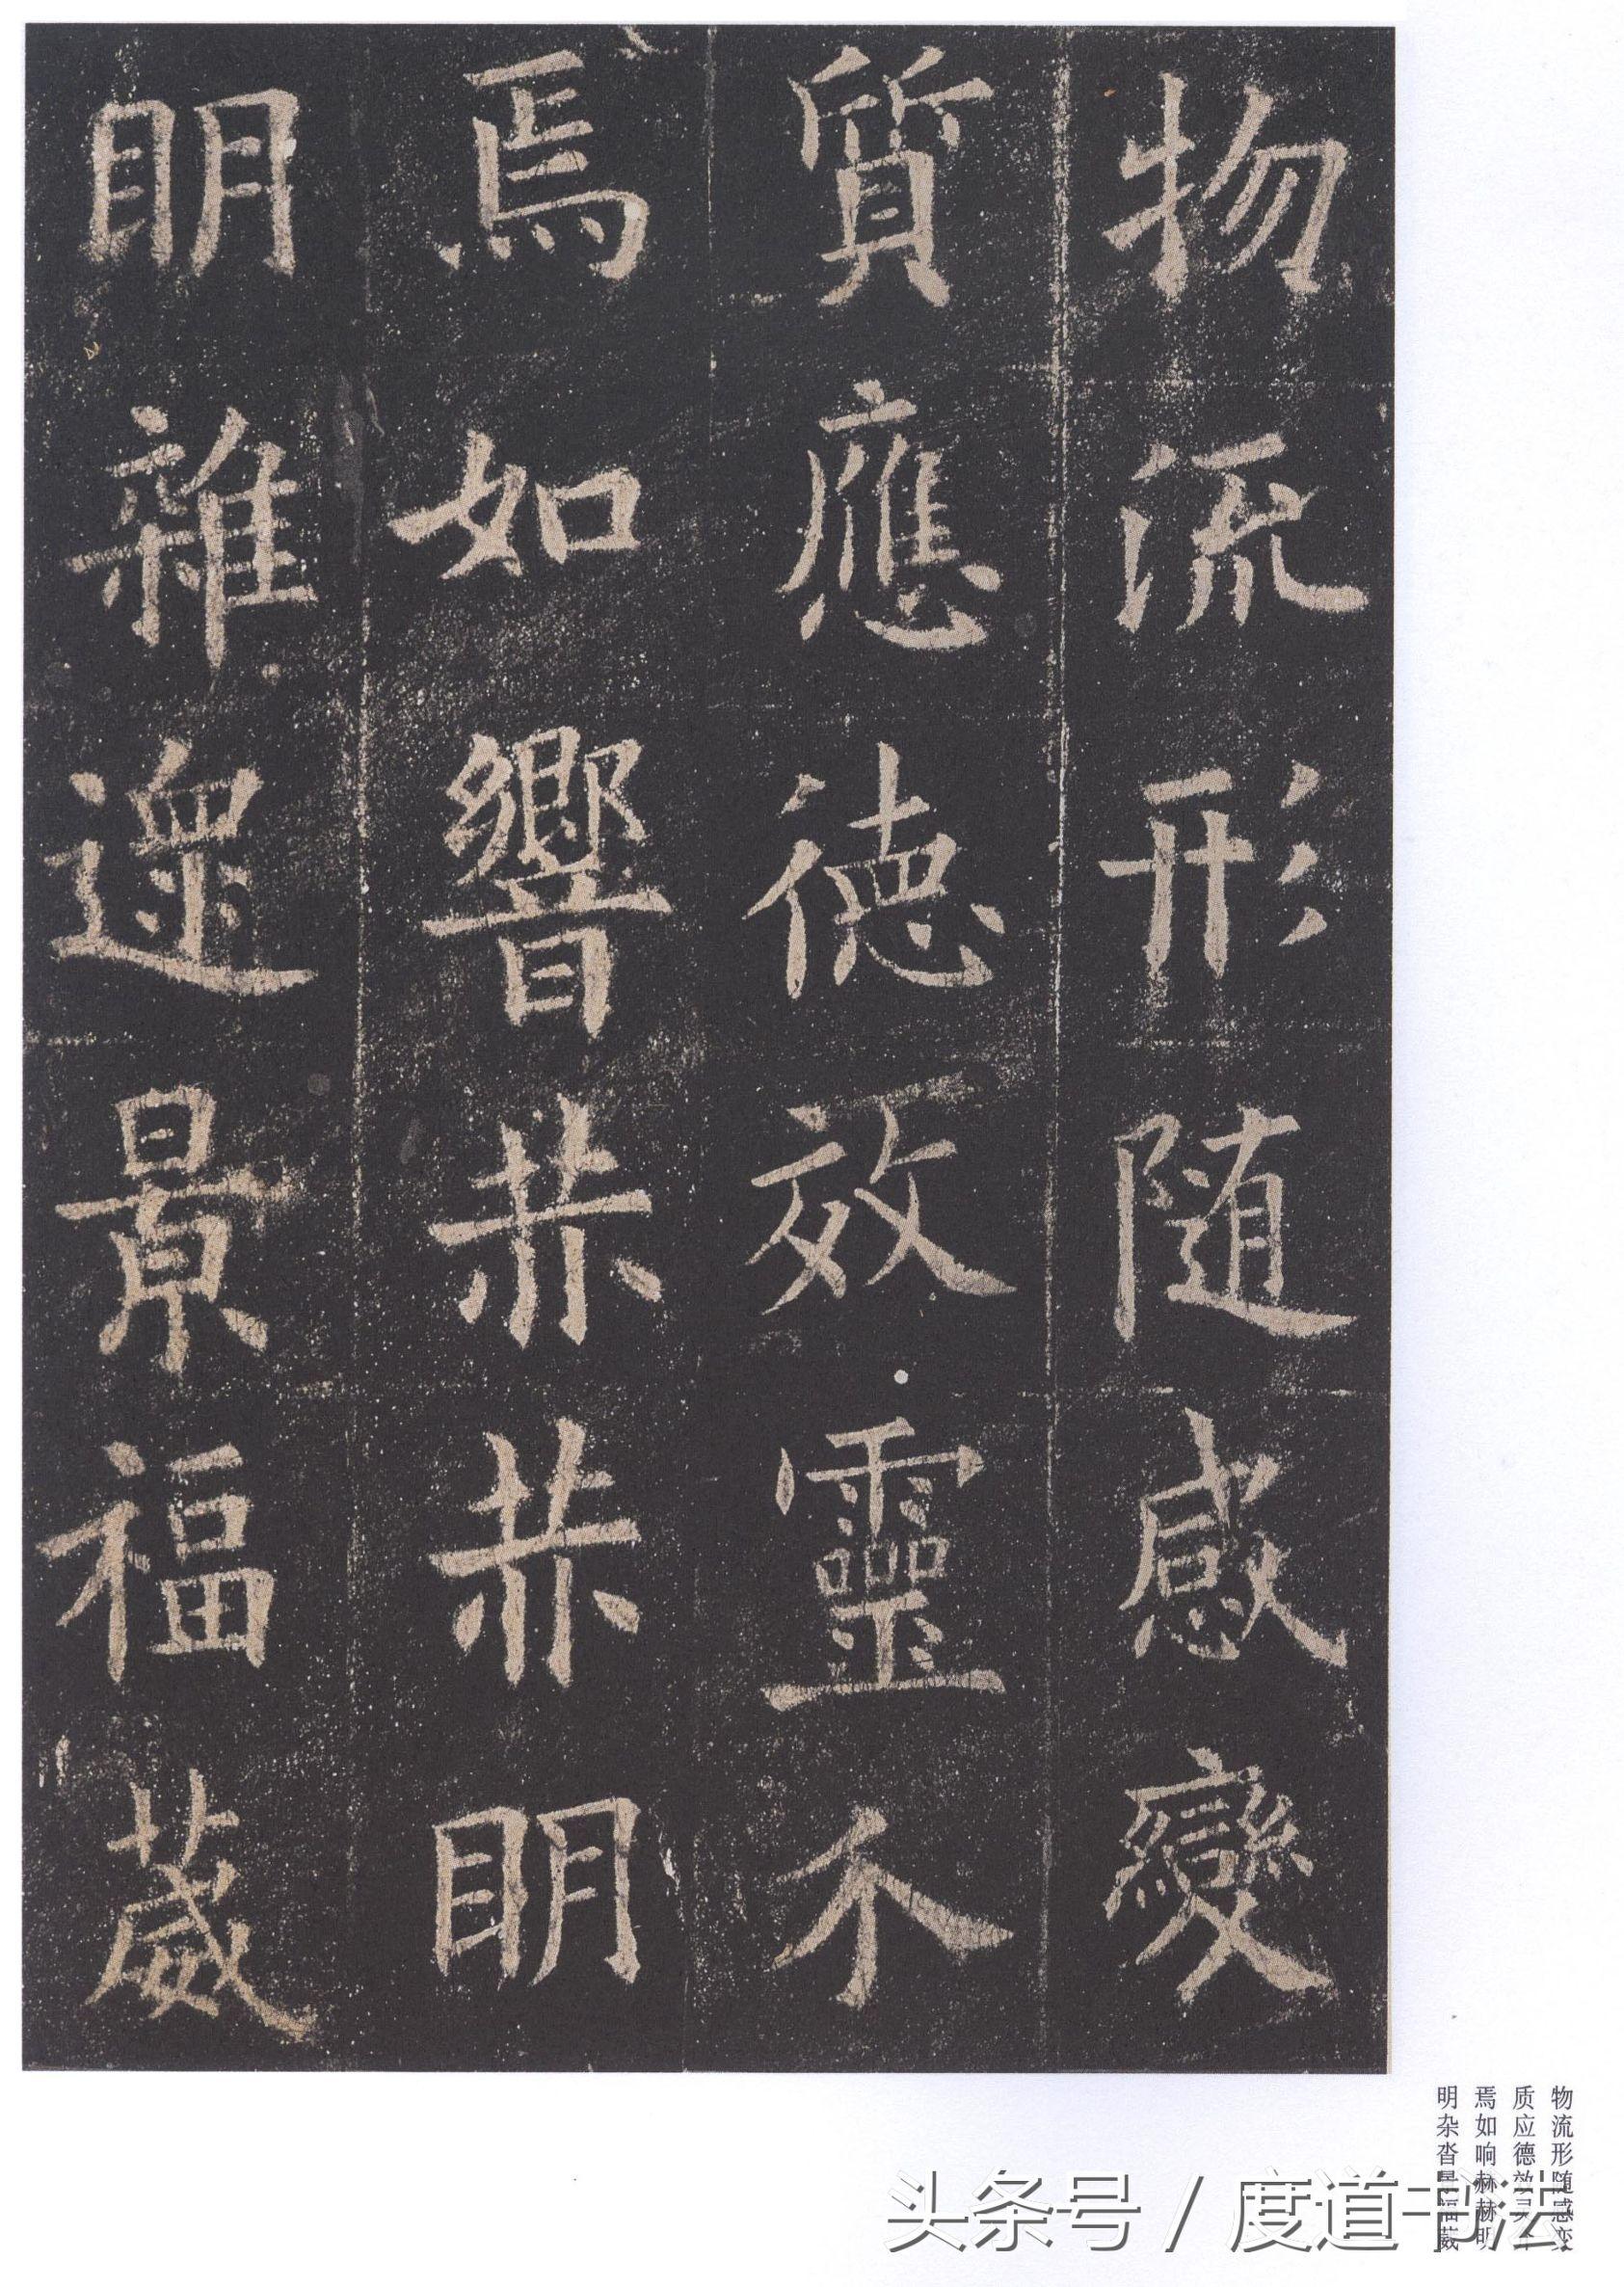 物流形随感變
質應德效靈不
焉如響赫赫明
明雜遝景福葳
物流形随感变
质应德效灵不
焉如响赫赫明
明杂沓景福葳
头条号 / 度道书法